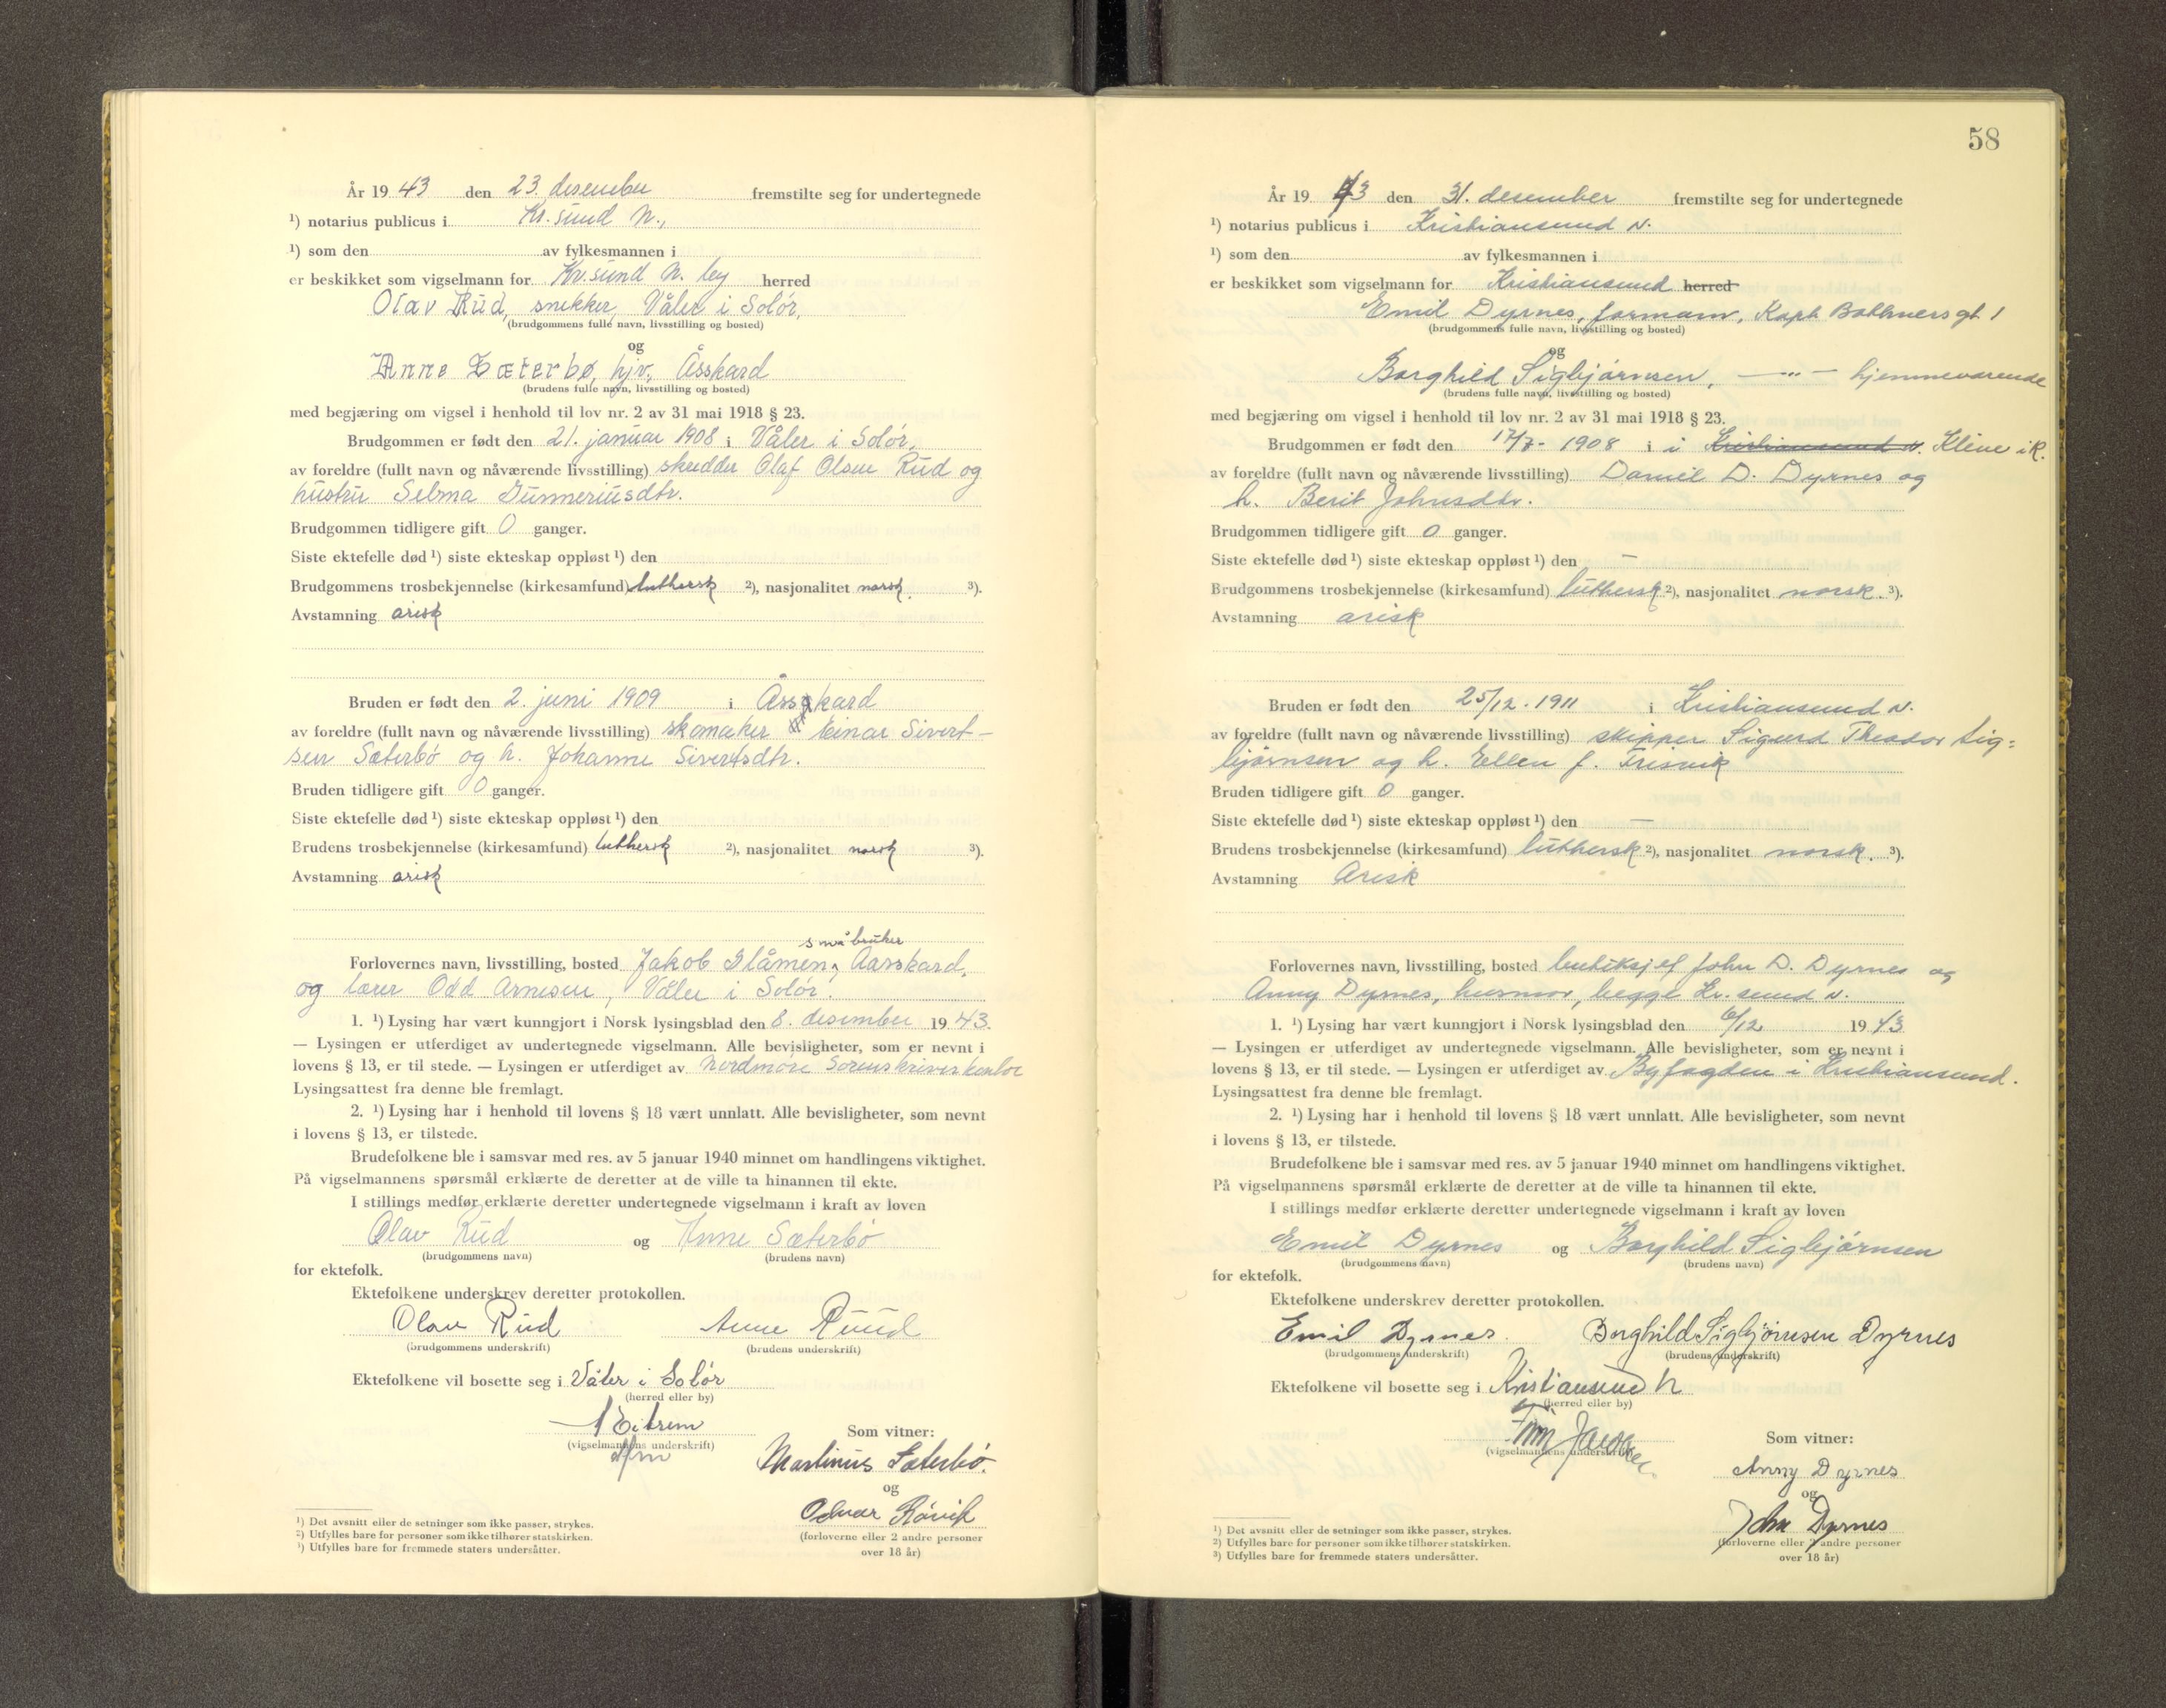 År 19 43 den 23. desember fremstilte seg for undertegnede
¹) notarius publicus i Kr.sund N.,
¹) som den av fylkesmannen i
er beskikket som vigselmann for Kr.sund N. by herred
Olav Rud, snekker, Våler i Solør,
(brudgommens fulle navn, livsstilling og bosted)
og
Anne Sæterbø, hjv., Åsskard
(brudens fulle navn, livsstilling og bosted)
med begjæring om vigsel i henhold til lov nr. 2 av 31 mai 1918 § 23.
Brudgommen er født den 21. januar 1908 i Våler i Solør.
av foreldre (fullt navn og nåværende livsstilling) skredder Olaf Olsen Rud og
hustru Selma Gunneriusdtr.
Brudgommen tidligere gift 0 ganger.
Siste ektefelle død ¹) siste ekteskap oppløst ¹) den
Brudgommens trosbekjennelse (kirkesamfund) luthersk ²), nasjonalitet norsk ³).
Avstamning arisk
Bruden er født den 2. juni 1909 i Åsskard
av foreldre (fullt navn og nåværende livsstilling) skomaker Einar Sivert-
sen Sæterbø og h. Johanne Sivertsdtr.
Bruden tidligere gift 0 ganger.
Siste ektefelle død ¹) siste ekteskap oppløst ¹) den
Brudens trosbekjennelse (kirkesamfund) luthersk ²), nasjonalitet norsk ³).
Avstamning arisk
småbruker
Forlovernes navn, livsstilling, bosted Jakob Glåmen, Aasskard,
og lærer Odd Arnesen, Våler i Solør.
1. ¹) Lysing har vært kunngjort i Norsk lysingsblad den 8. desember 19 43.
— Lysingen er utferdiget av undertegnede vigselmann. Alle bevisligheter, som er nevnt i
lovens § 13, er til stede. — Lysingen er utferdiget av Nordmøre Sorenskriverkontor
Lysingsattest fra denne ble fremlagt.
2. ¹) Lysing har i henhold til lovens § 18 vært unnlatt. Alle bevisligheter, som nevnt
i lovens § 13, er tilstede.
Brudefolkene ble i samsvar med res. av 5 januar 1940 minnet om handlingens viktighet.
På vigselmannens spørsmål erklærte de deretter at de ville ta hinannen til ekte.
I stillings medfør erklærte deretter undertegnede vigselmann i kraft av loven
Olav Rud og Anne Sæterbø
(brudgommens navn) (brudens navn)
for ektefolk.
Ektefolkene underskrev deretter protokollen.
Olav Rud Anne Ruud
(brudgommens underskrift) (brudens underskrift)
Ektefolkene vil bosette seg i Våler i Solør
(herred eller by)
Eitrem
(vigselmannens underskrift)
Som vitner:
Martinus Sæterbø.
og
Odvar Røvik
(forloverne eller 2 andre personer
over 18 år)
¹) Det avsnitt eller de setninger som ikke passer, strykes.
²) Utfylles bare for personer som ikke tilhører statskirken.
³) Utfylles bare for fremmede staters undersåtter.
58
År 19 43 den 31. desember fremstilte seg for undertegnede
¹) notarius publicus i Kristiansund N.
¹) som den av fylkesmannen i
er beskikket som vigselmann for Kristiansund herred
Emil Dyrnes, formann, Kapt. Bothnersgt 1
(brudgommens fulle navn, livsstilling og bosted)
og
Borghild Sigbjørnsen, —„— hjemmeværende
(brudens fulle navn, livsstilling og bosted)
med begjæring om vigsel i henhold til lov nr. 2 av 31 mai 1918 § 23.
Brudgommen er født den 17/7- 1908 i i Kristiansund N. Kleive i R.
av foreldre (fullt navn og nåværende livsstilling) Daniel D. Dyrnes og
h. Berit Johnsdtr.
Brudgommen tidligere gift 0 ganger.
Siste ektefelle død ¹) siste ekteskap oppløst ¹) den —
Brudgommens trosbekjennelse (kirkesamfund) luthersk ²), nasjonalitet norsk. ³).
Avstamning arisk
Bruden er født den 25/12. 1911 i Kristiansund N.
av foreldre (fullt navn og nåværende livsstilling) skipper Sigurd Theodor Sig=
bjørnsen og h. Ellen f. Frisvik
Bruden tidligere gift 0 ganger.
Siste ektefelle død ¹) siste ekteskap oppløst ¹) den —
Brudens trosbekjennelse (kirkesamfund) luthersk ²), nasjonalitet norsk. ³).
Avstamning Arisk
Forlovernes navn, livsstilling, bosted butiksjef John D. Dyrnes og
Anny Dyrnes, husmor, begge Kr.sund N.
1. ¹) Lysing har vært kunngjort i Norsk lysingsblad den 6/12 19 43
— Lysingen er utferdiget av undertegnede vigselmann. Alle bevisligheter, som er nevnt i
lovens § 13, er til stede. — Lysingen er utferdiget av Byfogden i Kristiansund.
Lysingsattest fra denne ble fremlagt.
2. ¹) Lysing har i henhold til lovens § 18 vært unnlatt. Alle bevisligheter, som nevnt
i lovens § 13, er tilstede.
Brudefolkene ble i samsvar med res. av 5 januar 1940 minnet om handlingens viktighet.
På vigselmannens spørsmål erklærte de deretter at de ville ta hinannen til ekte.
I stillings medfør erklærte deretter undertegnede vigselmann i kraft av loven
Emil Dyrnes og Borghild Sigbjørnsen
(brudgommens navn) (brudens navn)
for ektefolk.
Ektefolkene underskrev deretter protokollen.
Emil Dyrnes. Borghild Sigbjørnsen Dyrnes
(brudgommens underskrift) (brudens underskrift)
Ektefolkene vil bosette seg i Kristiansund N
(herred eller by)
(vigselmannens underskrift)
Som vitner:
Anny Dyrnes
og
John Dyrnes
(forloverne eller 2 andre personer
over 18 år)
¹) Det avsnitt eller de setninger som ikke passer, strykes.
²) Utfylles bare for personer som ikke tilhører statskirken.
³) Utfylles bare for fremmede staters undersåtter.